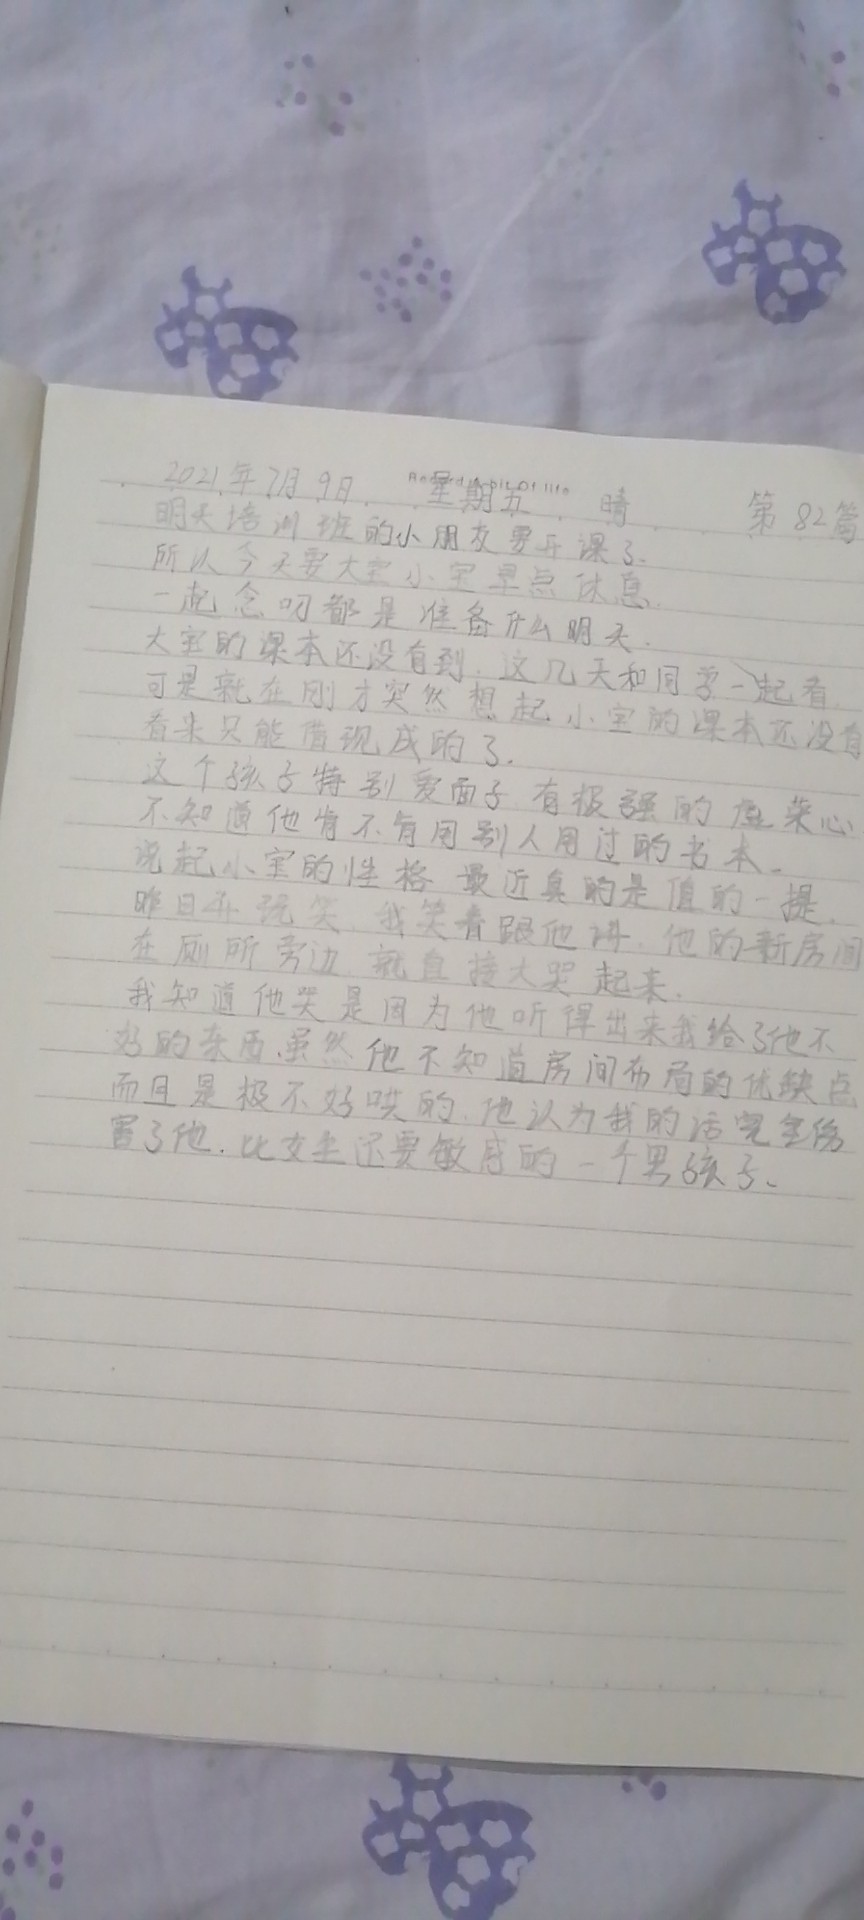 2021年7月9日 星期五 晴 第82篇
明天培训班的小朋友要开课了.
所以今天要大宝小宝早点休息.
一起念叨都是准备什么明天.
大宝的课本还没有到.这几天和同学一起看.
可是就在刚才突然想起小宝的课本还没有
看来只能借现成的了.
这个孩子特别爱面子有极强的虚荣心
不知道他肯不肯用别人用过的书本.
说起小宝的性格最近真的是值的一提.
昨日开玩笑.我笑着跟他讲.他的新房间
在厕所旁边.就直接大哭起来.
我知道他哭是因为他听得出来我给了他不
好的东西.虽然他不知道房间布局的优缺点
而且是极不好哄的.他认为我的话完全伤
害了他.比女生还要敏感的一个男孩子.